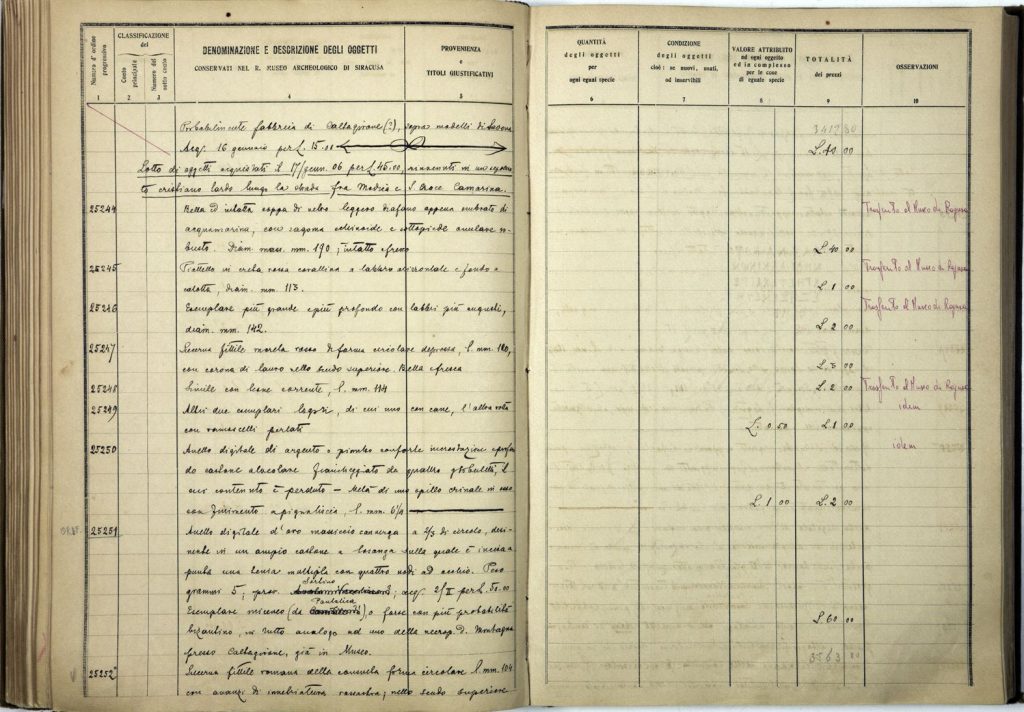 Numero d'ordine progressivo
CLASSIFICAZIONE del
Conto principale
Numero del sotto conto
DENOMINAZIONE E DESCRIZIONE DEGLI OGGETTI
CONSERVATI NEL R. MUSEO ARCHEOLOGICO DI SIRACUSA
PROVENIENZA
e
TITOLI GIUSTIFICATIVI
1 2 3 4 5
Probabilmente fabbrica di Caltagirone (?), sopra modelli di Savona
Acq. 16 gennaio per L. 15.00
Lotto di oggetti acquistati il 17/genn. 06 per L. 45.00, rinvenuti in un
to cristiano tardo lungo la strada fra Modica e S. Croce Camarina.
25244 Bella ed intatta coppa di vetro leggero diafano appena ombrato di
acquamarina, con sagoma echinoide e sottopiede anulare ro-
busto. Diam. mass. mm. 190; intatto e fresco
25245 Piattello in creta rossa corallina a labbro orizzontale e fondo a
calotta, diam. mm. 113.
25246 Esemplare più grande e più profondo con labbri più angusti,
diam. mm. 142.
25247 Lucerna fittile moreta rosso di forma circolare depressa, l. mm. 120,
con corona di lauro nello scudo superiore. Bella e fresca
25248 Simile con leone corrente, l. mm. 114
25249 Altri due esemplari logori, di cui uno con cane, l'altro
con ramoscelli perlati
25250 Anello digitale di argento o piombo con forte incrostazione e
do castone a lacolare fiancheggiato da quattro globuletti, il
cui contenuto è perduto – Metà di uno spillo crinale in osso
con finimento a pigna liscia, l. mm. 6½
25251 Anello digitale d'oro massiccio con verga a 2/3 di circolo, desi-
nente in un ampio castone a losanga sulla quale è incisa a
punta una linea multipla con quattro nodi ad occhio. Peso
grammi 5; prov. Sortino; acq. 2/II per L. 50.00
Pantalica
Esemplare miceneo (da ), o forse con più probabilità
bizantino, in tutto analogo ad uno della necrop. d. Montagna
presso Caltagirone, già in Museo.
25252 Lucerna fittile romana della consueta forma circolare l. mm. 104
con avanzi di inverniatura rossastra; nello scudo superiore
QUANTITÀ
degli oggetti
per
ogni specie
CONDIZIONE
degli oggetti
cioè: se nuovi, usati,
od inservibili
VALORE ATTRIBUITO
ad ogni oggetto
ed in complesso
per le cose
di eguale specie
TOTALITÀ
dei prezzi
OSSERVAZIONI
6 7 8 9 10
3412 80
00
Trasferito al Museo di Ragusa
L. 40 00
Trasferito al Museo di Ragusa
L. 1 00
Trasferito al Museo di Ragusa
L. 2 00
L. 3 00
L. 2 00 Trasferito al Museo di Ragusa
idem
L. 0 50 L. 1 00
idem
L. 1 00 L. 2 00
L. 60 00
3563 80